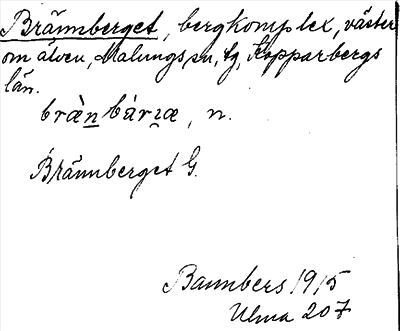 Brännberget, bergkomplex, väster
om älven, Malungs sn, Kopparbergs
län.
bræ̀n bæ̀rɪæ, n.
Brännberget G.
Bannbers 1915
Ulma 207